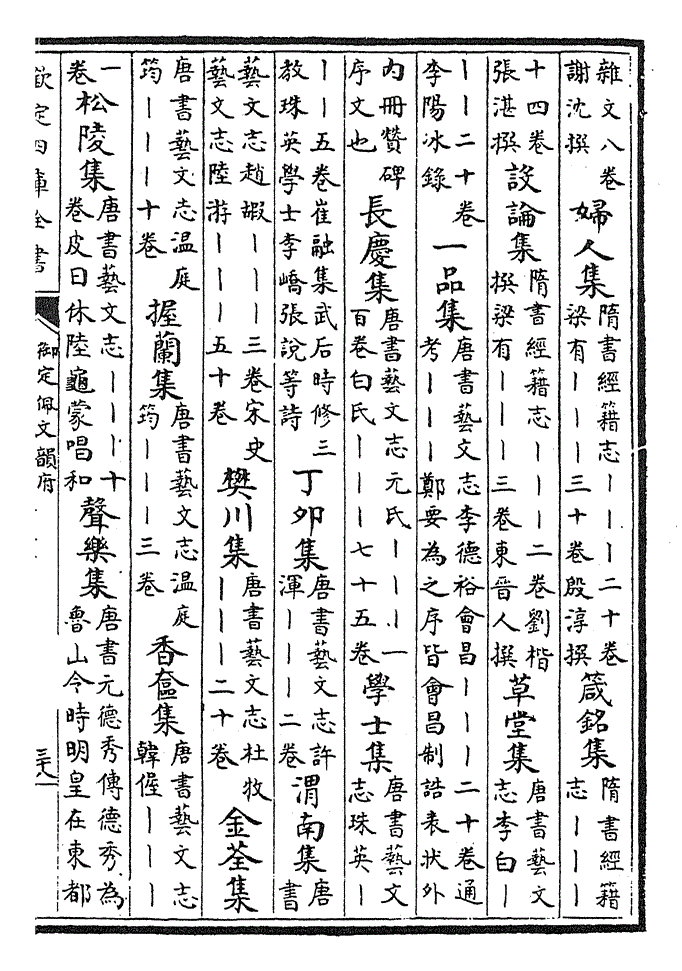 雜文八卷謝沈撰婦人集隋書經籍志｜｜｜二十卷梁有｜｜｜三十卷殷淳撰箴銘集隋書經籍志｜｜｜
十四卷張湛撰設論集隋書經籍志｜｜｜二卷劉楷撰梁有｜｜｜三卷東晉人撰草堂集唐書藝文志李白｜
｜｜二十卷李陽冰錄一品集唐書藝文志李德裕會昌｜｜｜二十卷通考｜｜｜鄭要為之序皆會昌制誥表狀外
内冊贊碑序文也長慶集唐書藝文志元氏｜｜｜一百卷白氏｜｜｜七十五卷學士集唐書藝文志珠英｜
｜｜五卷崔融集武后時修三教珠英學士李嶠張說等詩丁卯集唐書藝文志許渾｜｜｜二卷渭南集唐書
藝文志趙嘏｜｜｜三卷宋史藝文志陸游｜｜｜五十卷樊川集唐書藝文志杜牧｜｜｜二十卷金荃集
唐書藝文志温庭筠｜｜｜十卷握蘭集唐書藝文志温庭筠｜｜｜三卷香奩集唐書藝文志韓偓｜｜｜
一卷松陵集唐書藝文志｜｜｜十卷皮日休陸龜蒙唱和聲樂集唐書元德秀傳德秀為魯山令時明皇在東都
欽定四庫全書
御定佩文韻府